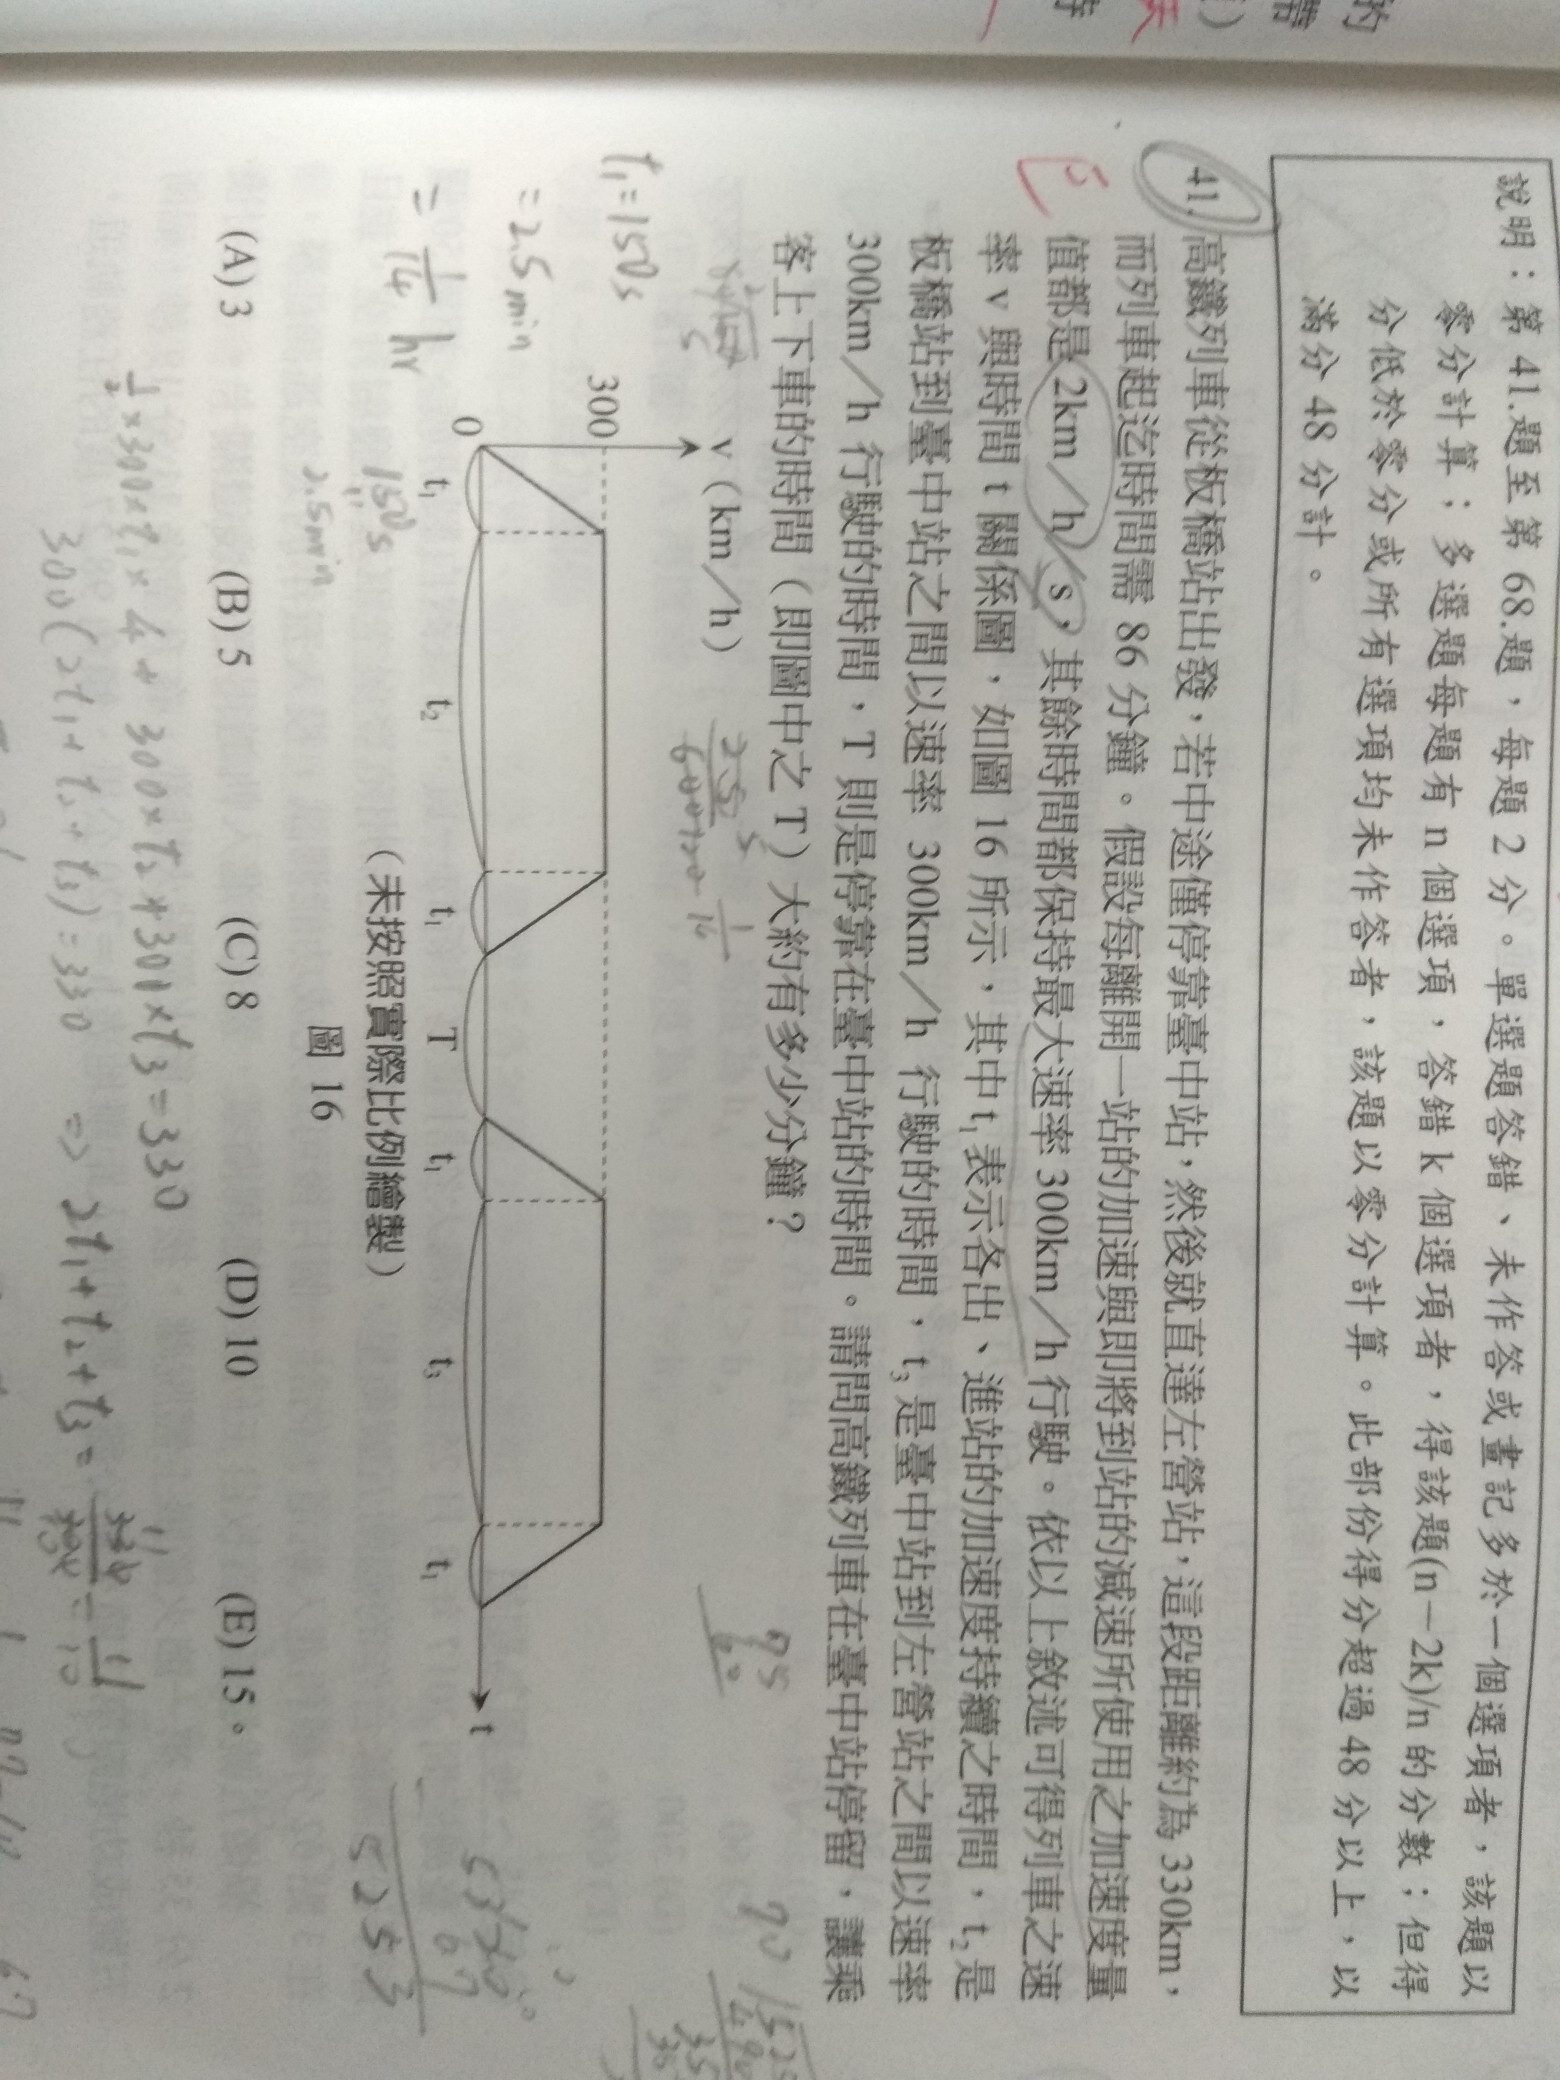 說明：第 41.題至第 68.題，每題 2 分。單選題答錯、未作答或畫記多於一個選項者，該題以
零分計算；多選題每題有 n 個選項，答錯 k 個選項者，得該題(n－2k)/n 的分數；但得
分低於零分或所有選項均未作答者，該題以零分計算。此部份得分超過 48 分以上，以
滿分 48 分計。
41.
高鐵列車從板橋站出發，若中途僅停靠臺中站，然後就直達左營站，這段距離約為 330km，
而列車起迄時間需 86 分鐘。假設每離開一站的加速與即將到站的減速所使用之加速度量
值都是 2km／h／s，其餘時間都保持最大速率 300km／h 行駛。依以上敘述可得列車之速
率 v 與時間 t 關係圖，如圖 16 所示，其中 t₁ 表示各出、進站的加速度持續之時間，t₂ 是
板橋站到臺中站之間以速率 300km／h 行駛的時間，t₃ 是臺中站到左營站之間以速率
300km／h 行駛的時間，T 則是停靠在臺中站的時間。請問高鐵列車在臺中站停留，讓乘
客上下車的時間（即圖中之 T）大約有多少分鐘？
v（km／h）
300
0
t₁ t₂ t₁ T t₁ t₃ t₁
t
（未按照實際比例繪製）
圖 16
(A) 3 (B) 5 (C) 8 (D) 10 (E) 15。
t₁=150s
=2.5min
=1/14 hr
150s
2.5min
1/2×300×t₁×4+300×t₂+300×t₃=330
300(2t₁+t₂+t₃)=330 ⇒ 2t₁+t₂+t₃=330/300=11/10
5253